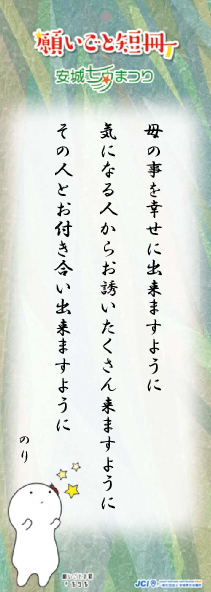 願いごと短冊
安城七夕まつり
母の事を幸せに出来ますように
気になる人からお誘いたくさん来ますように
その人とお付き合い出来ますように
のり
JCI